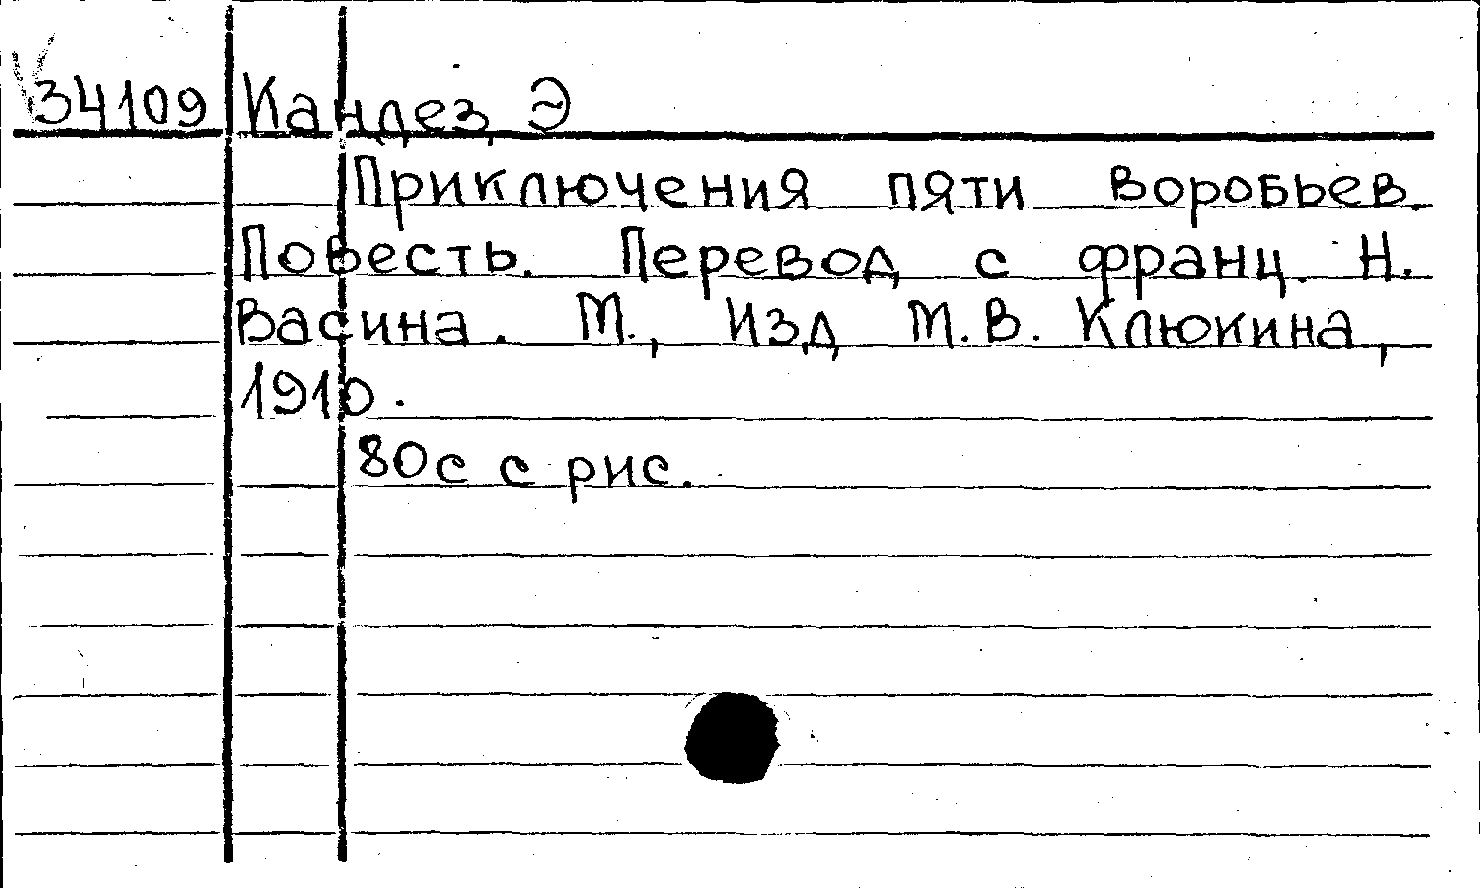 34109 Кандез Э
Приключения пяти воробьев.
Повесть. Перевод с франц. Н.
Васина. М., Изд М.В. Клюкина,
1910.
80с с рис.